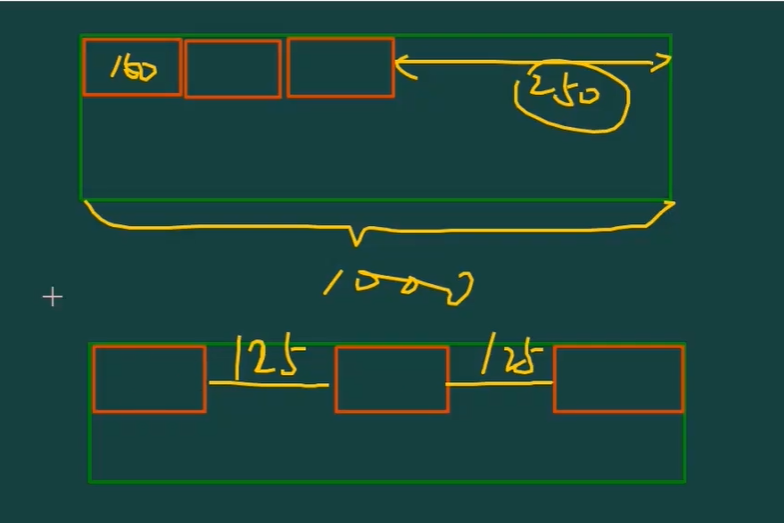 160
250
1000
125 125